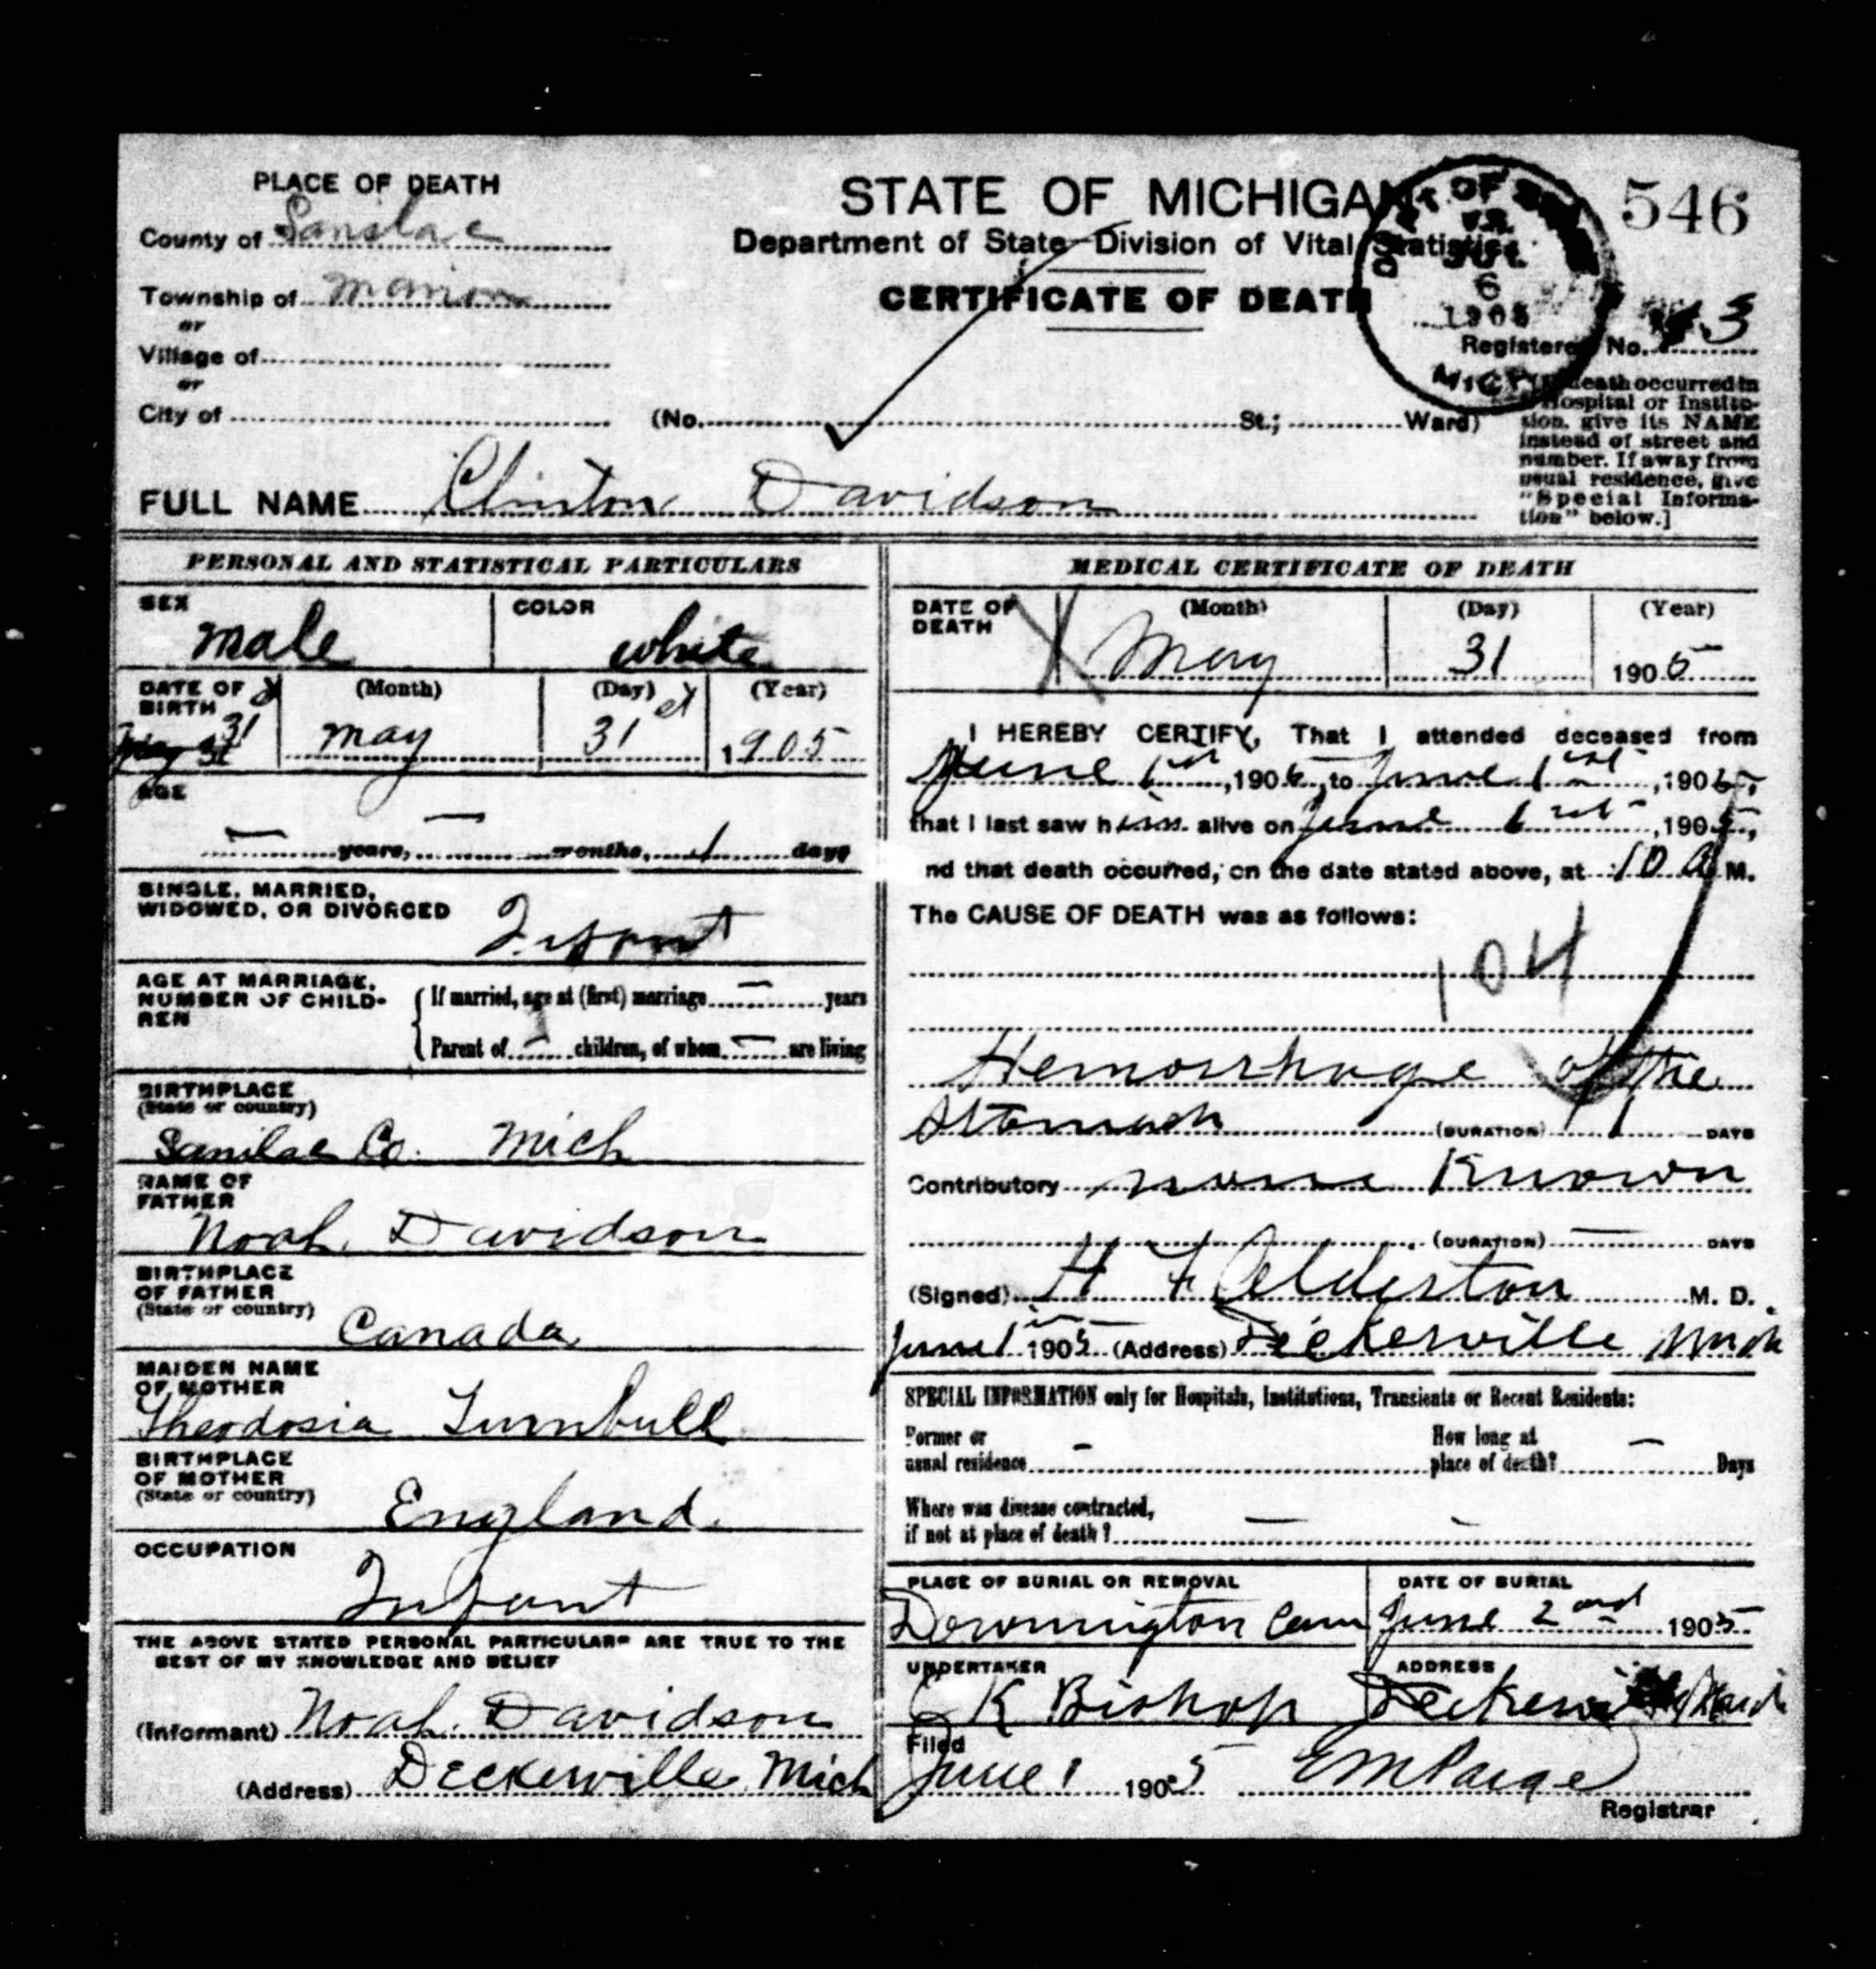 PLACE OF DEATH
County of Sanilac
Township of Marion
or
Village of
or
City of
STATE OF MICHIGAN
Department of State—Division of Vital Statistics
CERTIFICATE OF DEATH
546
6
1905
MICH
Registered No. 3
(No. St.; Ward)
death occurred in
Hospital or Institu-
tion, give its NAME
instead of street and
number. If away from
usual residence, give
"Special Informa-
tion" below.]
FULL NAME Clinton Davidson
PERSONAL AND STATISTICAL PARTICULARS
SEX
male
COLOR
white
DATE OF BIRTH
(Month) (Day) (Year)
31
May 31 1905
AGE
— years, — months, 1 days
SINGLE, MARRIED,
WIDOWED, OR DIVORCED
Infant
AGE AT MARRIAGE,
NUMBER OF CHILD-
REN
If married, age at (first) marriage — years
Parent of — children, of whom — are living
BIRTHPLACE
(State or country)
Sanilac Co. Mich
NAME OF
FATHER
Noah Davidson
BIRTHPLACE
OF FATHER
(State or country)
Canada
MAIDEN NAME
OF MOTHER
Theodosia Turnbull
BIRTHPLACE
OF MOTHER
(State or country)
England.
OCCUPATION
Infant
THE ABOVE STATED PERSONAL PARTICULARS ARE TRUE TO THE
BEST OF MY KNOWLEDGE AND BELIEF
(Informant) Noah Davidson
(Address) Deckerville Mich
MEDICAL CERTIFICATE OF DEATH
DATE OF
DEATH
(Month) (Day) (Year)
May 31 1905
I HEREBY CERTIFY, That I attended deceased from
June 1st, 1905, to June 1st, 1905,
that I last saw him alive on June 1st, 1905,
nd that death occurred, on the date stated above, at 10 a M.
The CAUSE OF DEATH was as follows:
104
Hemorrhage of the
Stomach (DURATION) 1 DAYS
Contributory none Known
(DURATION) — DAYS
(Signed) H F Alderton M. D.
June 1st 1905 (Address) Deckerville Mich
SPECIAL INFORMATION only for Hospitals, Institutions, Transients or Recent Residents:
Former or
usual residence —
How long at
place of death? — Days
Where was disease contracted,
if not at place of death? —
PLACE OF BURIAL OR REMOVAL
Downington Cem
DATE OF BURIAL
June 2nd 1905
UNDERTAKER
K Bishop
ADDRESS
Deckerville
Filed
June 1 1905 EM Paige
Registrar